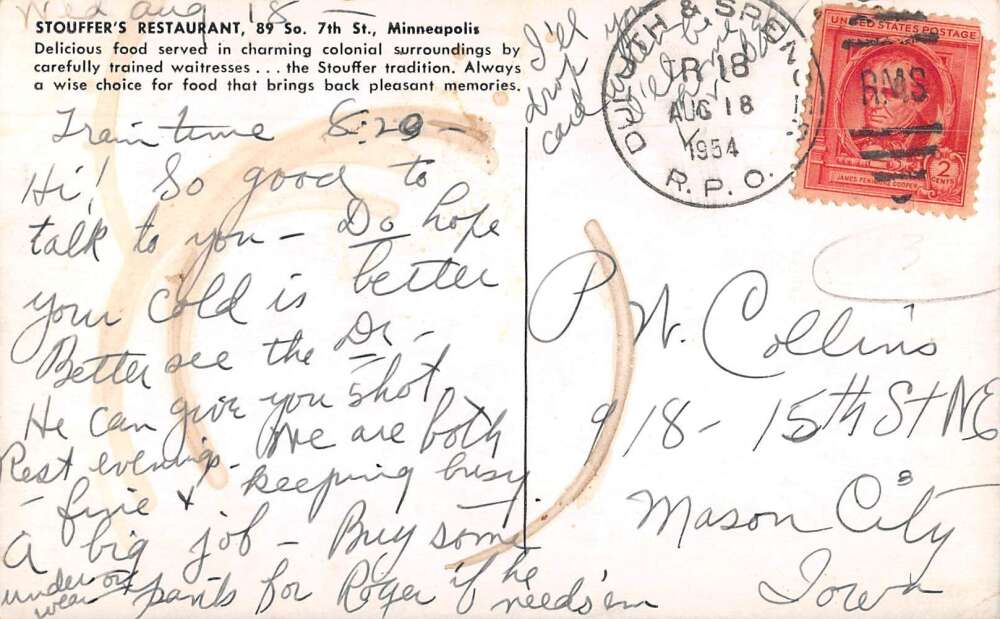 Wed Aug 18 —
STOUFFER'S RESTAURANT, 89 So. 7th St., Minneapolis
Delicious food served in charming colonial surroundings by
carefully trained waitresses . . . the Stouffer tradition. Always
a wise choice for food that brings back pleasant memories.
Train time 8:20 —
Hi! So good to
talk to you — Do hope
your cold is better
Better see the Dr —
He can give you shot.
Rest evenings — We are both
fine & keeping busy
A big job — Buy some
under wear or pants for Roger if he
needs 'em
I'll
drop you
card
DULUTH & SPENC
TR 18
AUG 18
1954
R.P.O.
RMS
UNITED STATES POSTAGE
JAMES FENIMORE COOPER
2
CENTS
P. W. Collins
918 - 15th St NE
Mason City 8
Iowa